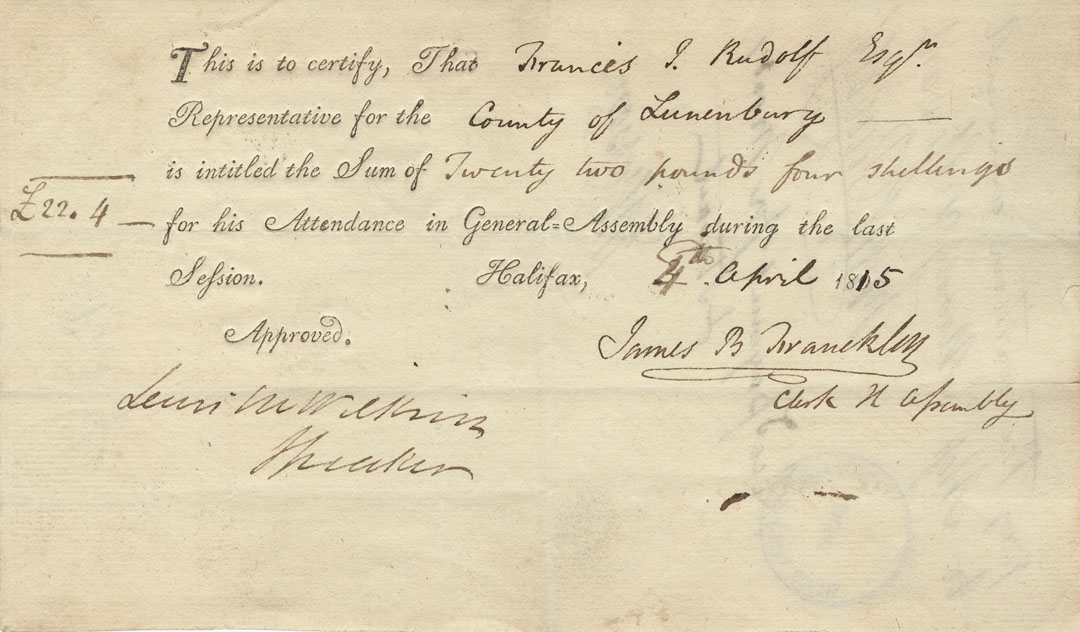 This is to certify, That Francis J. Rudolf Esqr.
Representative for the County of Lunenburg
is intitled the Sum of Twenty two pounds four shillings
£22. 4
for his Attendance in General=Assembly during the last
Seſsion. Halifax, 4th April 1815
Approved.
James B Francklin
Clerk H Aſsembly
Lewis M Wilkins
Speaker